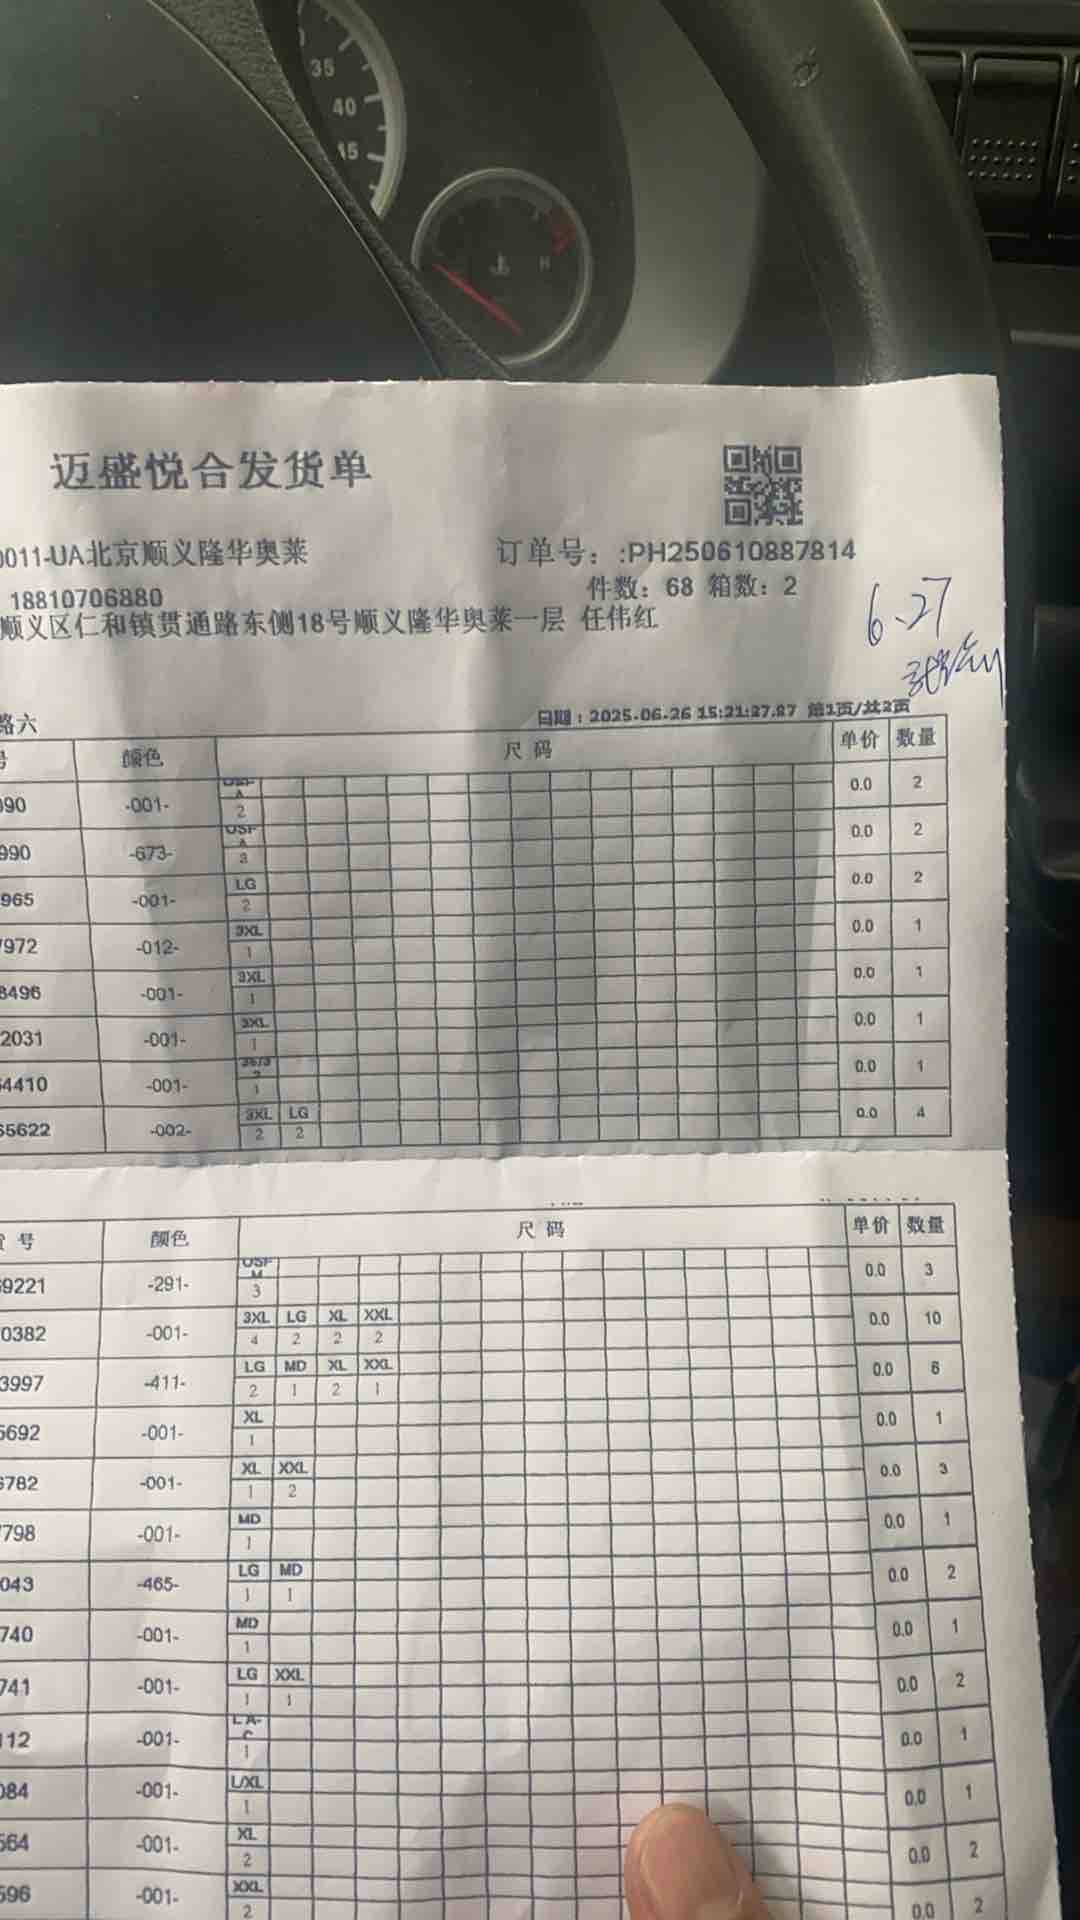 35
40
45
H
迈盛悦合发货单
0011-UA北京顺义隆华奥莱 订单号：:PH250610887814
18810706880 件数：68 箱数：2
顺义区仁和镇贯通路东侧18号顺义隆华奥莱一层 任伟红
6.27
路六 日期：2025-06-26 15:21:27.87 第1页/共2页
号 颜色 尺码 单价 数量
090 -001- 2 0.0 2
990 -673- 0.0 2
965 -001- LG 2 0.0 2
7972 -012- 3XL 1 0.0 1
8496 -001- 3XL 1 0.0 1
2031 -001- 3XL 1 0.0 1
64410 -001- 1 0.0 1
65622 -002- 3XL LG 2 2 0.0 4
货号 颜色 尺码 单价 数量
69221 -291- 3 0.0 3
0382 -001- 3XL LG XL XXL 4 2 2 2 0.0 10
3997 -411- LG MD XL XXL 2 1 2 1 0.0 6
5692 -001- XL 1 0.0 1
6782 -001- XL XXL 1 2 0.0 3
7798 -001- MD 1 0.0 1
043 -465- LG MD 1 1 0.0 2
740 -001- MD 1 0.0 1
741 -001- LG XXL 1 1 0.0 2
112 -001- 1 0.0 1
084 -001- L/XL 1 0.0 1
564 -001- XL 2 0.0 2
596 -001- XXL 2 0.0 2